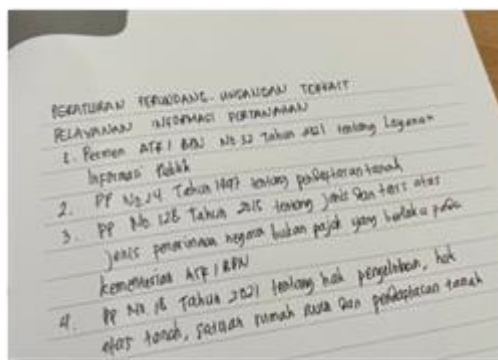 PERATURAN PERUNDANG-UNDANGAN TERKAIT
PELAYANAN INFORMASI PERTANAHAN
1. Permen ATR / BPN No 32 Tahun 2021 tentang Layanan
Informasi Publik
2. PP No 24 Tahun 1997 tentang pendaftaran tanah
3. PP No 128 Tahun 2015 tentang jenis dan tarif atas
jenis penerimaan negara bukan pajak yang berlaku pada
kementerian ATR / BPN
4. PP No. 18 Tahun 2021 tentang hak pengelolaan, hak
atas tanah, satuan rumah susun dan pendaftaran tanah